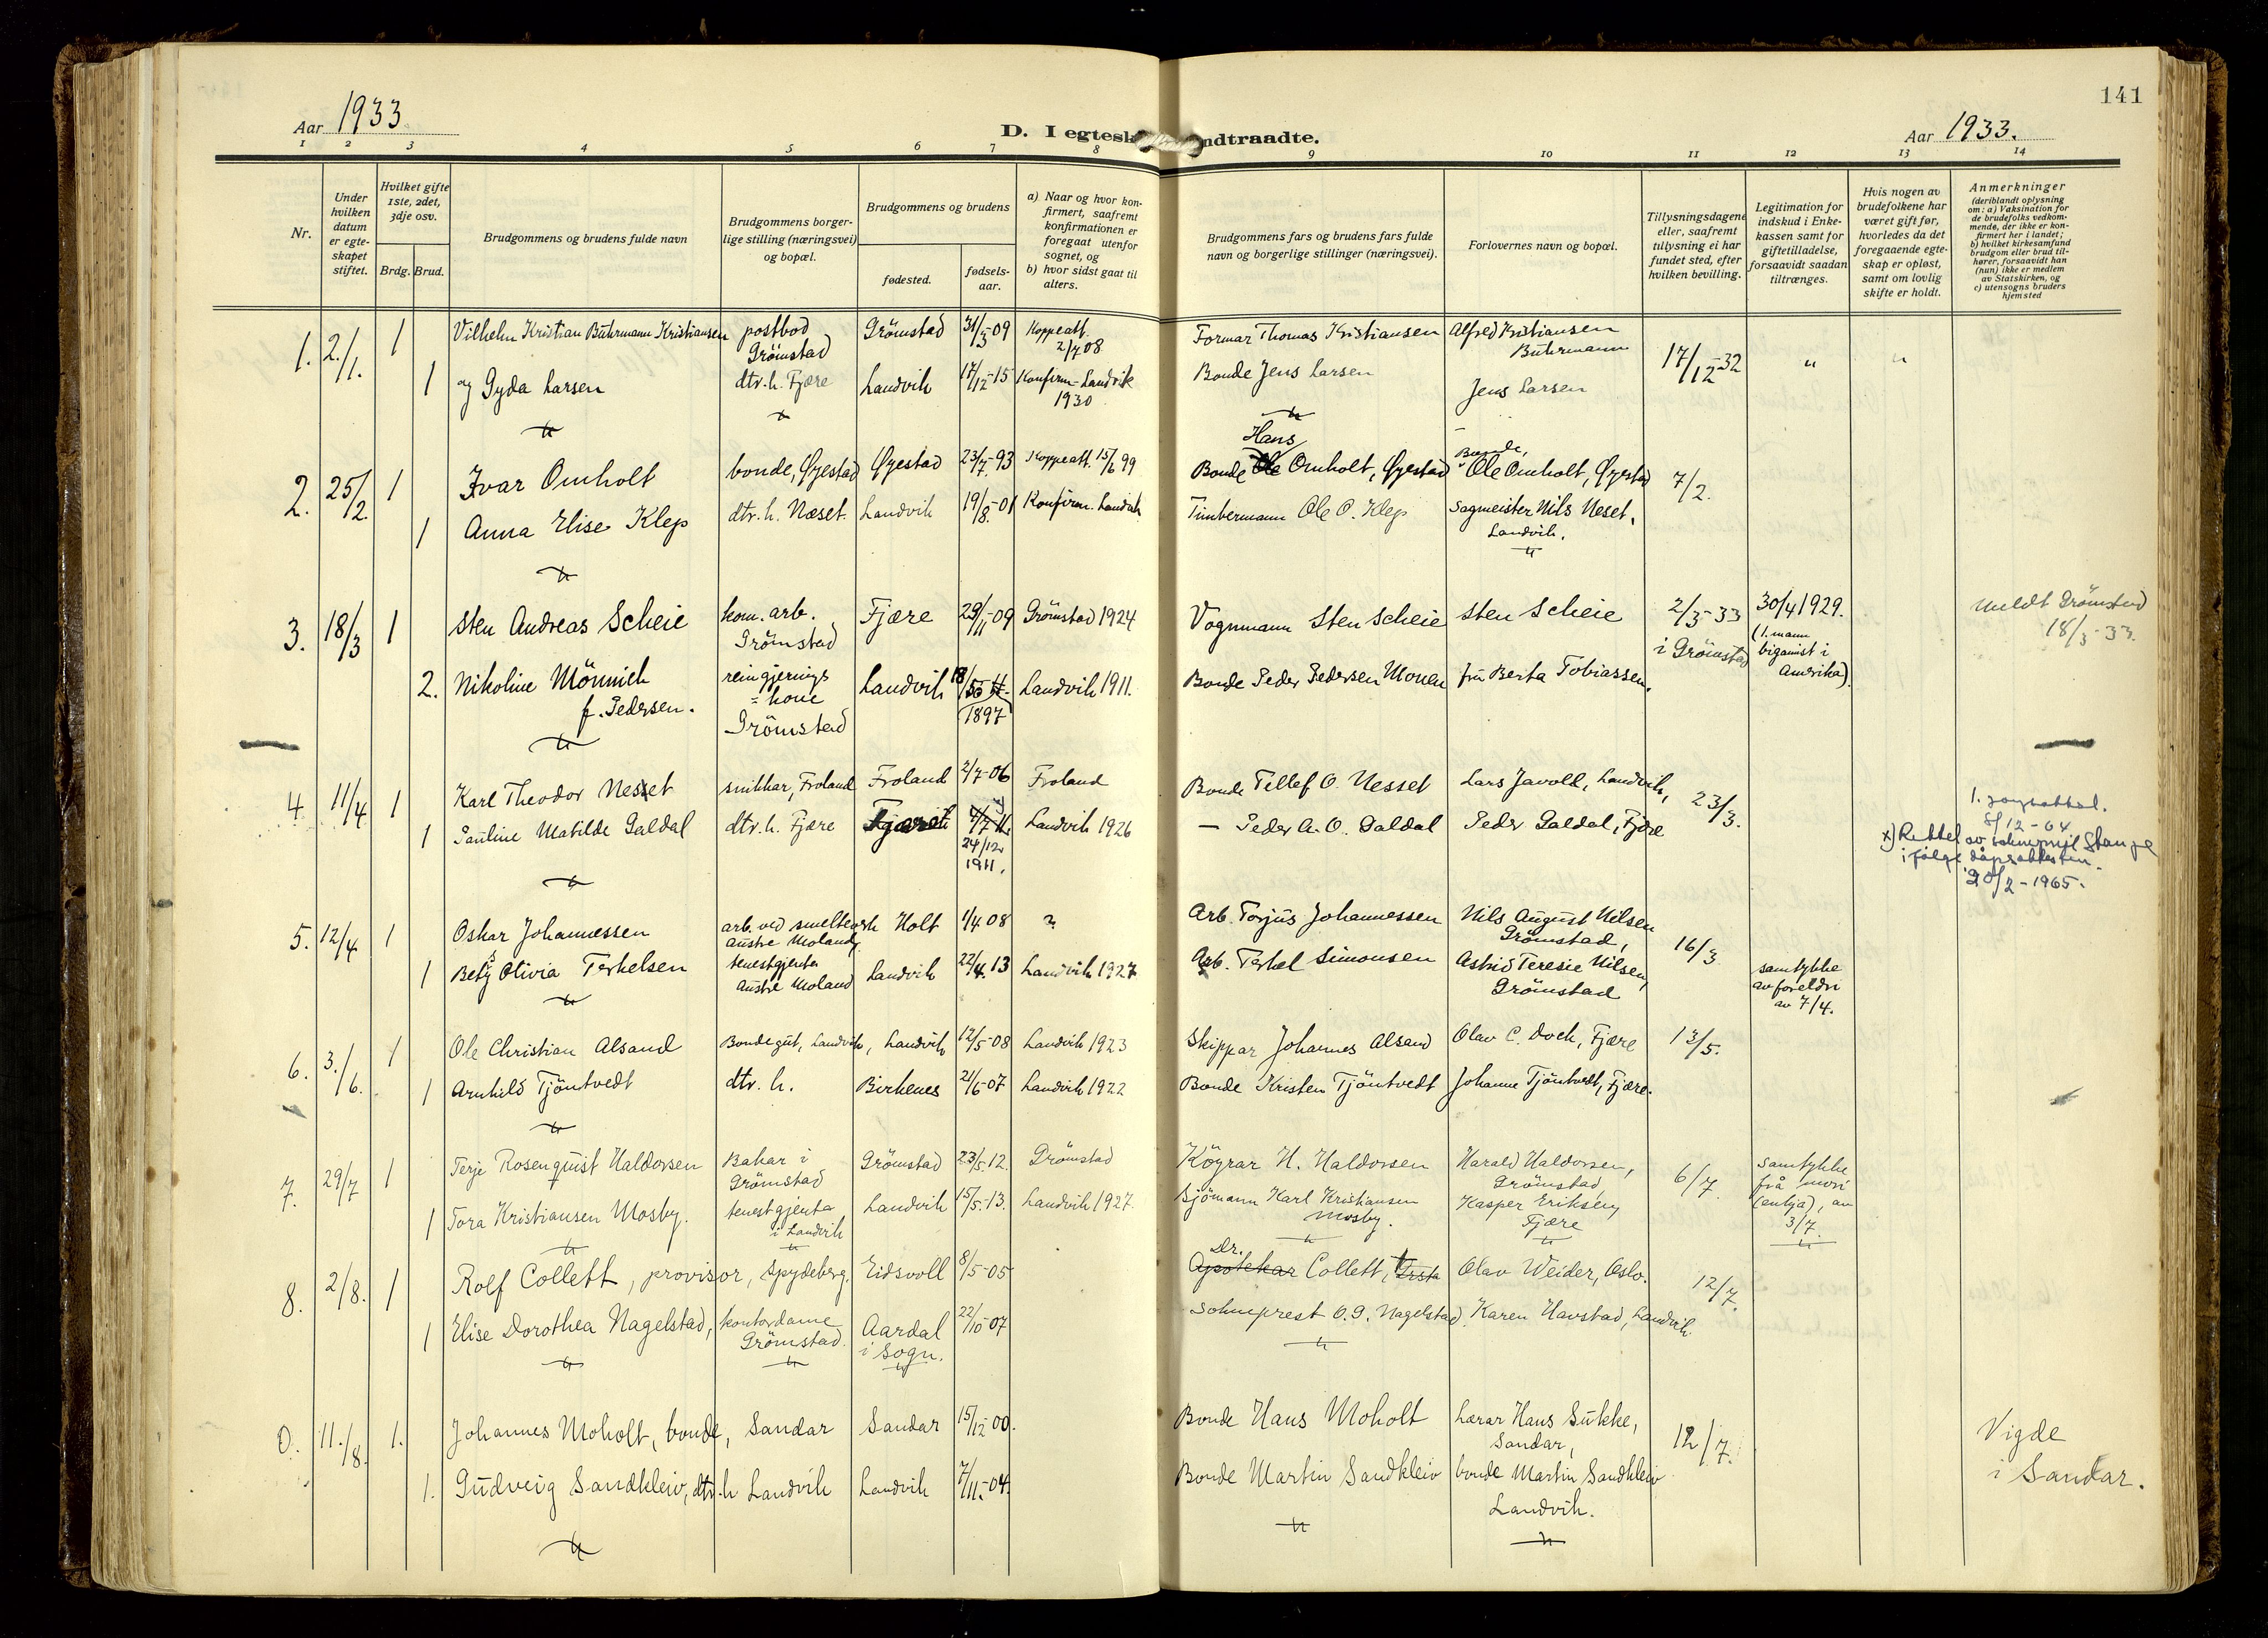 141
Aar 1933
D. I egtesk
ndtraadte.
Aar 1933.
1 2 3 4 5 6 7 8 9 10 11 12 13 14
Nr.
Under hvilken datum er egte-skapet stiftet.
Hvilket gifte 1ste, 2det, 3dje osv.
Brdg. Brud.
Brudgommens og brudens fulde navn
Brudgommens borger-lige stilling (næringsvei) og bopæl.
Brudgommens og brudens
fødested.
fødsels-aar.
a) Naar og hvor kon-firmert, saafremt konfirmationen er foregaat utenfor sognet, og
b) hvor sidst gaat til alters.
Brudgommens fars og brudens fars fulde navn og borgerlige stillinger (næringsvei).
Forlovernes navn og bopæl.
Tillysningsdagene eller, saafremt tillysning ei har fundet sted, efter hvilken bevilling.
Legitimation for indskud i Enke-kassen samt for giftetilladelse, forsaavidt saadan tiltrænges.
Hvis nogen av brudefolkene har været gift før, hvorledes da det foregaaende egte-skap er opløst, samt om lovlig skifte er holdt.
Anmerkninger (deriblandt oplysning om: a) Vaksination for de brudefolks vedkom-mende, der ikke er kon-firmert her i landet; b) hvilket kirkesamfund brudgom eller brud til-hører, forsaavidt han (hun) ikke er medlem av Statskirken, og c) utensogns bruders hjemsted
1. 2./1. 1 Vilhelm Kristian Buhrmann Kristiansen postbod Grömstad Grömstad 31/3-09 Koppeatt. 2/7 08 Formar Thomas Kristiansen Alfred Kristiansen Buhrmann 17/12-32 " "
1 og Gyda Larsen dtr. h. Fjære Landvik 17/12-15 Konfirm. Landvik 1930 Bonde Jens Larsen Jens Larsen
2. 25/2. 1 Ivar Omholt bonde, Øyestad Øyestad 23/7-93 Koppeatt. 15/6 99 Bonde Ole Hans Omholt, Øyestad Bonde, Ole Omholt, Øyestad 7/2.
1 Anna Elise Klep dtr. h. Næset. Landvik 19/8-01 Konfirm. Landvik Timbermann Ole O. Klep Sagmeister Nils Neset, Landvik.
3. 18/3 1 Sten Andreas Scheie kom. arb. Grömstad Fjære 29/11-09 Grömstad 1924 Vognmann Sten Scheie Sten Scheie 2/3-33 i Grömstad 30/4 1929. (1. mann bigamist i Amerika). meldt Grömstad 18/3-33.
2. Nikoline Mönnich f. Pedersen. reingjerings=kone Grömstad Landvik 1897 Landvik 1911. Bonde Peder Pedersen Monen frü Berta Tobiassen.
4. 11/4 1 Karl Theodor Nesset snikkar, Froland Froland 2/7-06 Froland Bonde Tellef O. Nesset Lars Javold, Landvik, 23/3.
1 Pauline Matilde Galdal dtr. h. Fjære Fjære 24/12 1911. Landvik 1926 — Peder A. O. Galdal Peder Galdal, Fjære
8/12-64
x) Rettet av sokneprest Stange i følge dåpsattesten. 20/2-1965.
5. 12/4 1 Oskar Johannessen arb. ved smelteverk Austre Moland Holt 1/4 08 ? Arb. Torjus Johannessen Nils August Nilsen Grömstad, 16/3
1 Betsy Olivia Terkelsen tenestgjenta Austre Moland Landvik 22/4. 13 Landvik 1927 Arb. Terkel Simonsen Astrid Teresie Nilsen, Grömstad samtykke av foreldri av 7/4.
6. 3./6. 1 Ole Christian Alsand Bondegut, Landvik, Landvik 12/5-08 Landvik 1923 Skippar Johannes Alsand Olav C. Dock, Fjære 13/5.
1 Arnhild Tjöntvedt dtr. h. Birkenes 21/6-07 Landvik 1922 Bonde Kristen Tjöntvedt Johanne Tjöntvedt, Fjære.
7. 29/7 1 Terje Rosenquist Haldorsen Bakar i Grömstad Grömstad 23/5. 12. Grömstad Köyrar H. Haldorsen Harald Haldorsen, Grömstad 6/7. samtykke frå mori (enkja), av 3/7.
1 Tora Kristiansen Mosby. tenestgjenta i Landvik Landvik 15/5. 13. Landvik 1927. Sjömann Karl Kristiansen Mosby. Kasper Eriksen, Fjære
8. 2/8. 1 Rolf Collett, provisor, Spydeberg. Eidsvoll 8/5-05 Dr. Apotekar Collett, Ørsta Olav Weider, Oslo. 12/7.
1 Elise Dorothea Nagelstad, kontordame Grömstad. Aardal i Sogn. 22/10-07 Sokneprest O. G. Nagelstad. Karen Havstad, Landvik.
11./8. 1. Johannes Moholt, bonde, Sandar Sandar 15/12 00. Bonde Hans Moholt Lærar Hans Sukke, Sandar, 12/7. Vigde i Sandar.
1. Gudveig Sandkleiv, dtr. h Landvik Landvik 7/11-04. Bonde Martin Sandkleiv bonde Martin Sandkleiv Landvik.